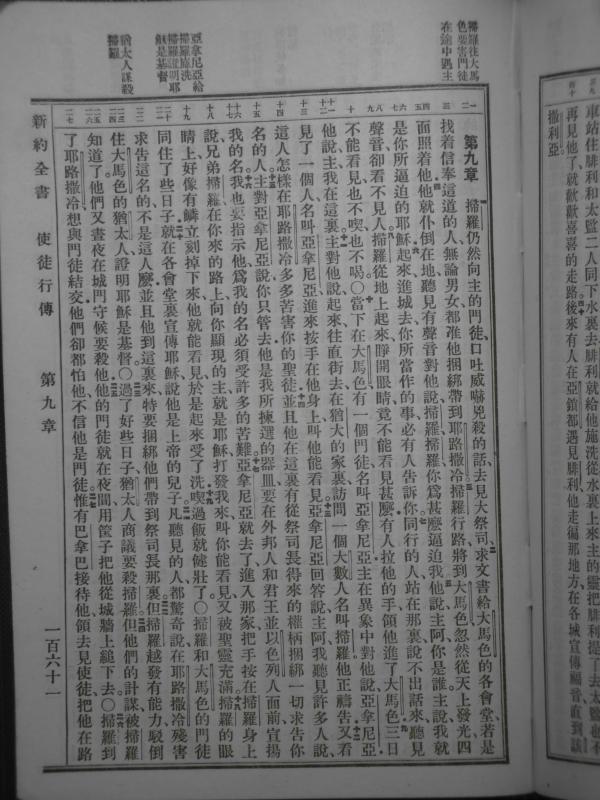 車站住腓利和太監二人同下水裏去腓利就給他施洗從水裏上來主的靈把腓利提了去太監也不
再見他了就歡歡喜喜的走路後來有人在亞鎖都遇見腓利他走徧那地方在各城宣傳福音直到該
撒利亞
掃羅往大馬
色要害門徒
在途中遇主
亞拿尼亞給
掃羅施洗
掃羅證明耶
穌是基督
猶太人謀殺
掃羅
第九章 掃羅仍然向主的門徒口吐威嚇兇殺的話去見大祭司求文書給大馬色的各會堂若是
找着信奉這道的人無論男女都准他捆綁帶到耶路撒冷掃羅行路將到大馬色忽然從天上發光四
面照着他他就仆倒在地聽見有聲音對他說掃羅掃羅你爲甚麼逼迫我他說主阿你是誰主說我就
是你所逼迫的耶穌起來進城去你所當作的事必有人告訴你同行的人站在那裏說不出話來聽見
聲音卻看不見人掃羅從地上起來睜開眼睛竟不能看見甚麼有人拉他的手領他進了大馬色三日
不能看見也不喫也不喝〇當下在大馬色有一個門徒名叫亞拿尼亞主在異象中對他說亞拿尼亞
他說主我在這裏主對他說起來往直街去在猶大的家裏訪問一個大數人名叫掃羅他正禱告又看
見了一個人名叫亞拿尼亞進來按手在他身上叫他能看見亞拿尼亞回答說主阿我聽見許多人說
這人怎樣在耶路撒冷多多苦害你的聖徒並且他在這裏有從祭司長得來的權柄捆綁一切求告你
名的人主對亞拿尼亞說你只管去他是我所揀選的器皿要在外邦人和君王並以色列人面前宣揚
我的名我也要指示他爲我的名必須受許多的苦難亞拿尼亞就去了進入那家把手按在掃羅身上
說兄弟掃羅在你來的路上向你顯現的主就是耶穌打發我來叫你能看見又被聖靈充滿掃羅的眼
睛上好像有鱗立刻掉下來他就能看見於是起來受了洗喫過飯就健壯了〇掃羅和大馬色的門徒
同住了些日子就在各會堂裏宣傳耶穌說他是上帝的兒子凡聽見的人都驚奇說在耶路撒冷殘害
求告這名的不是這人麽並且他到這裏來特要捆綁他們帶到祭司長那裏但掃羅越發有能力駁倒
住大馬色的猶太人證明耶穌是基督〇過了好些日子猶太人商議要殺掃羅但他們的計謀被掃羅
知道了他們又晝夜在城門守候要殺他他的門徒就在夜間用筐子把他從城牆上縋下去〇掃羅到
了耶路撒冷想與門徒結交他們卻都怕他不信他是門徒惟有巴拿巴接待他領去見使徒把他在路
新約全書 使徒行傳 第九章 一百六十一